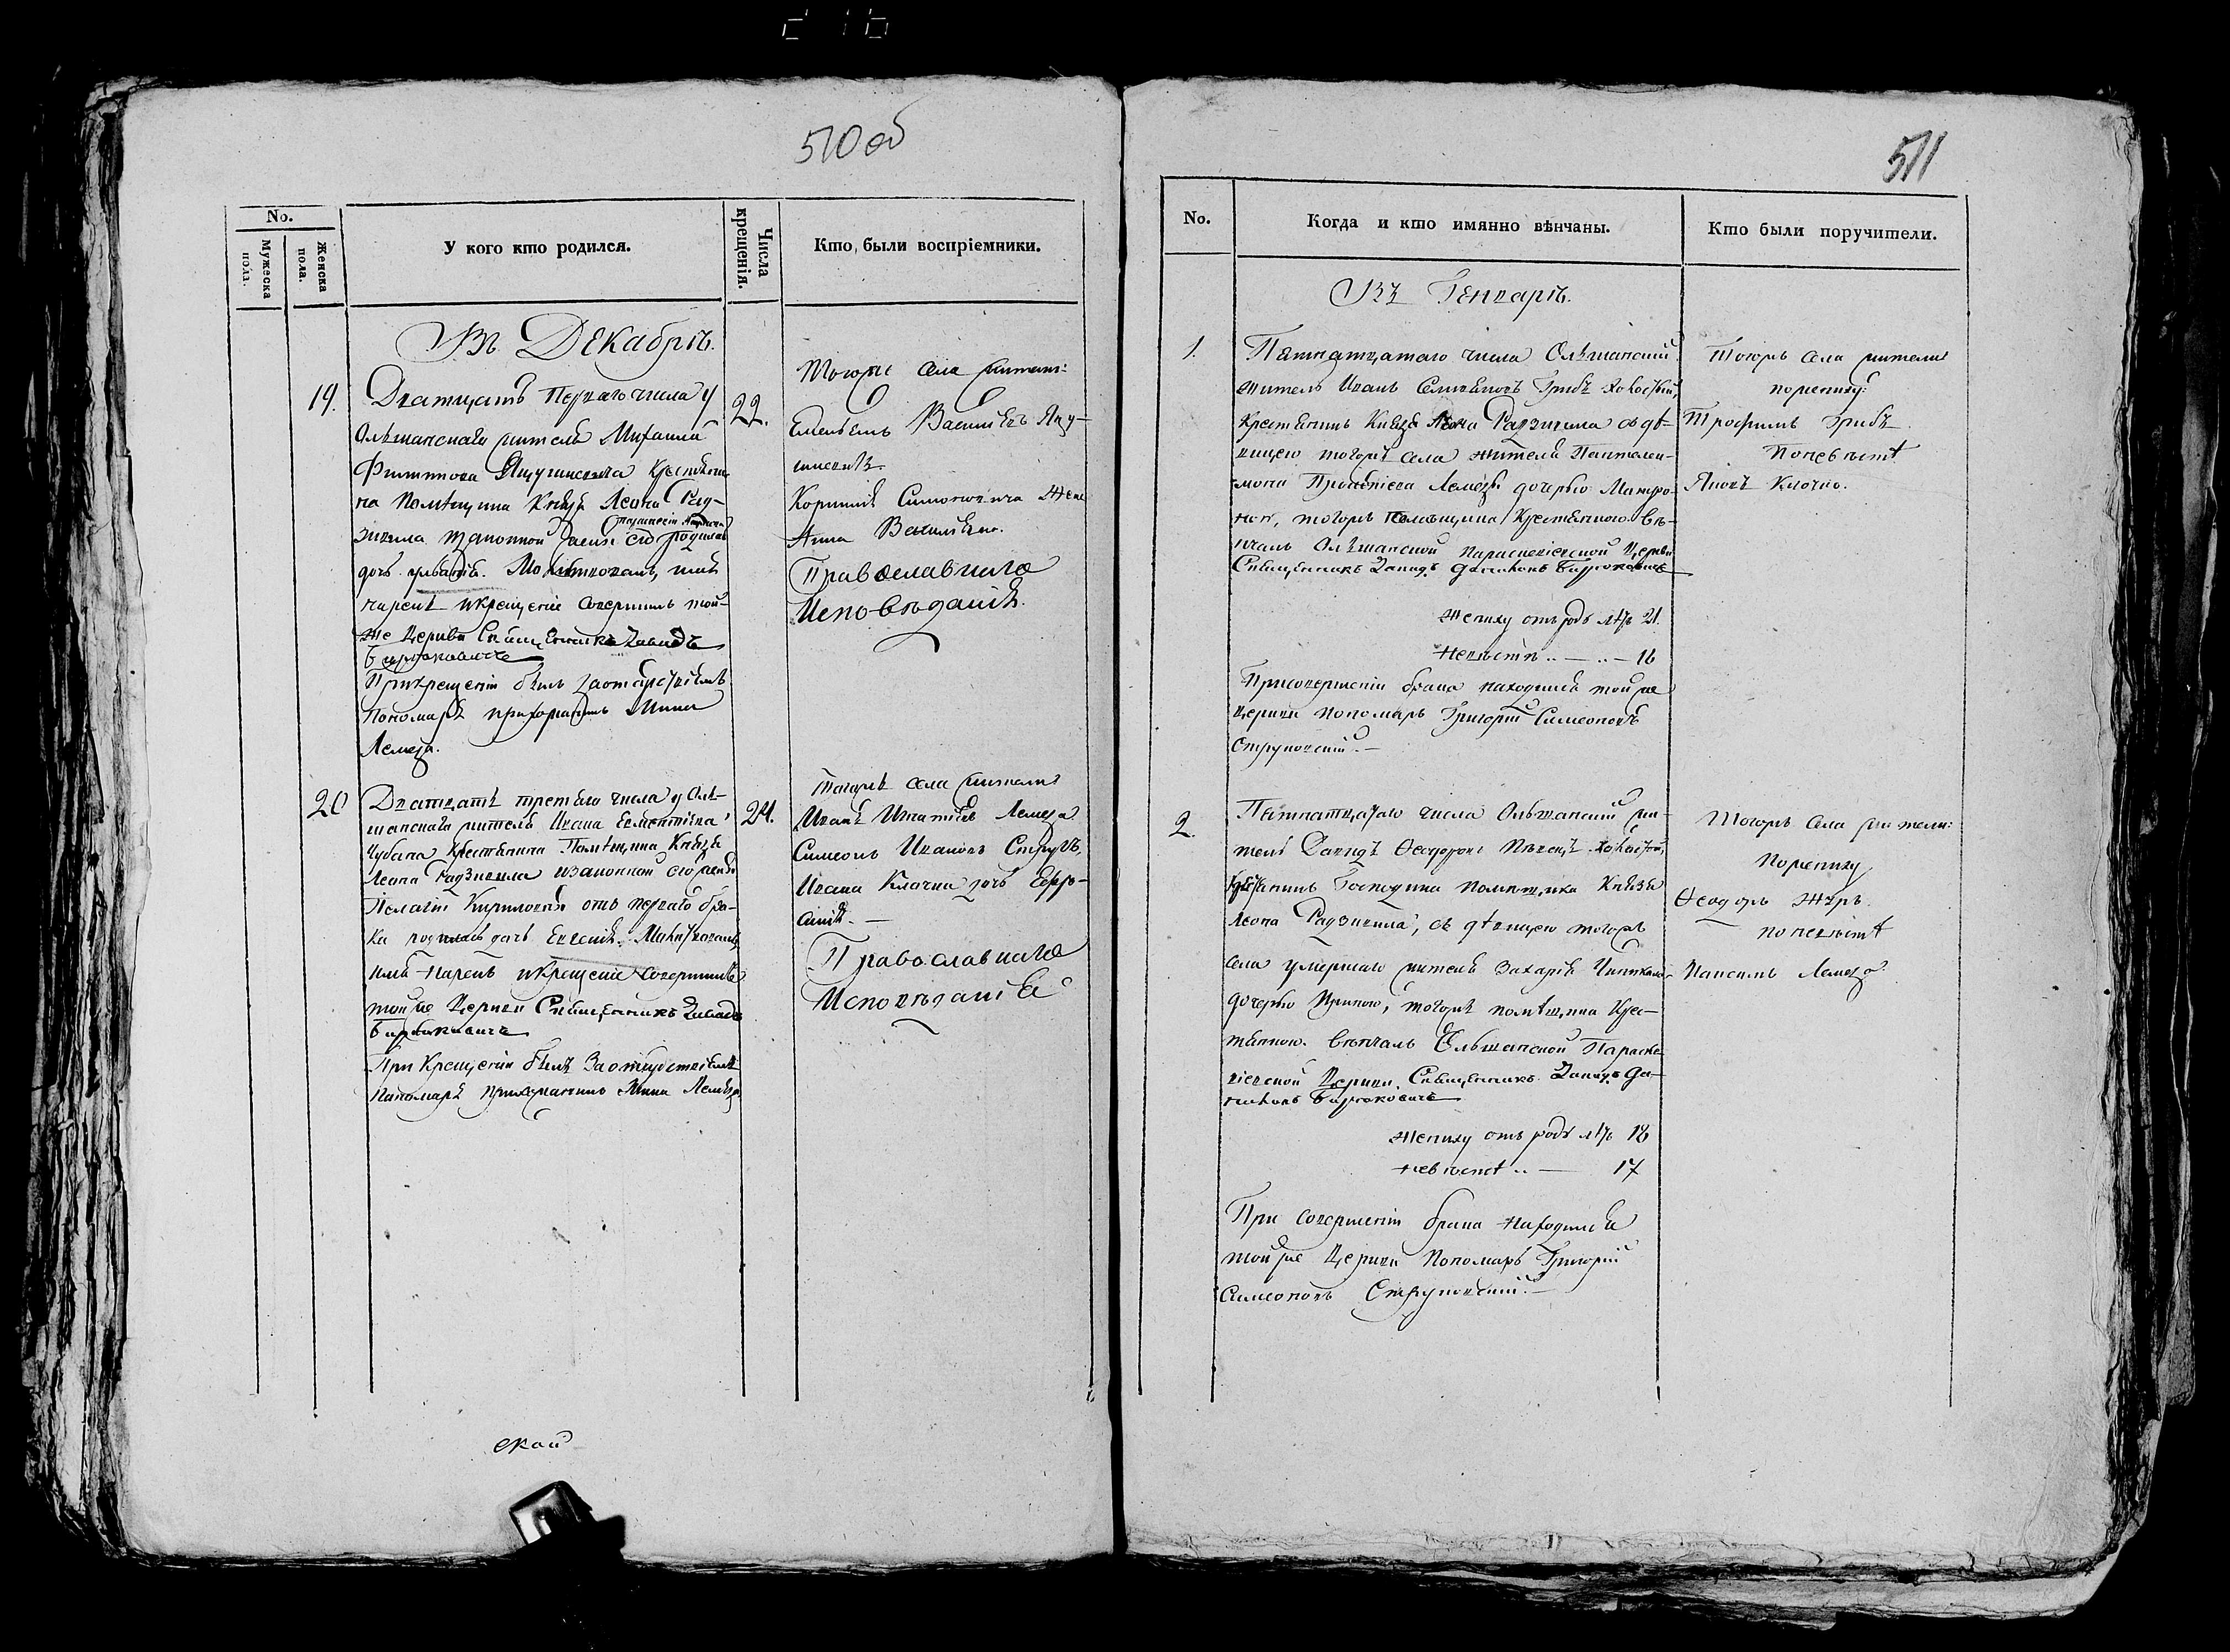 510 об
No.
Мужеска пола.
Женска пола.
У кого кто родился.
Числа крещенія.
Кто были воспріемники.
Въ Декабрѣ.
19.
Дватцать перваго числа у
Ольшанскаго жителя Михаила
Филиппова крестьяни-
на помѣщика Князя Леона Рад-
зивила законной жены его родилась
дочь Молитвовалъ, имя
нарекъ и крещеніе совершилъ той-
же Церкви Священникъ Давидъ
Бирюковичъ
При крещеніи былъ за отсутствіемъ
Пономаря прихожанинъ Мина
Лемеза.
22.
Тогожъ села жители:
Емельянъ Васильевъ Яцу-
шкевичъ.
Корнилія Симоновича жена
Анна Васильева.
Православнаго
Исповѣданія.
20
Дватцать третьяго числа у Оль-
шанскаго жителя Ивана Ерементіева
Чубача крестьянина Помѣщика Князя
Леона Радзивила и законной его жены
Пелагіи Кириловой отъ перваго бра-
ка родилась дочь Евгенія. Молитвовалъ,
имя нарекъ и крещеніе совершилъ
тойже Церкви Священникъ Давидъ
Бирюковичъ
При Крещеніи былъ за отсутствіемъ
Пономаря прихожанинъ Мина Лемеза
24.
Тогожъ села жители
Иванъ Игнатіевъ Лемеза
Симеонъ Ивановъ Струкъ,
Ивана Клочка дочь Евфро-
синія.
Православнаго
Исповѣданія
ской
511
No.
Когда и кто имянно вѣнчаны.
Кто были поручители.
Въ Генварѣ.
1.
Пятнатцатаго числа Ольшанскій
житель Иванъ Семеновъ Грибъ холостый,
крестьянинъ Князя Леона Радзивила съ дѣ-
вицею тогожъ села жителя Пантелей-
мона Прокопіева Лемезы дочерью Матро-
ною, тогожъ помѣщика крестьянкою. вѣ-
нчалъ Ольшанской Параскевіевской Церкви
Священникъ Давидъ Даниловъ Бирюковичъ
Жениху отъ родъ лѣтъ 21.
Невѣстѣ ..—..— 16
При совершеніи брака находился тойже
церкви пономарь Григорій Симеоновъ
Струковскій.—
Тогожъ села жители
по жениху:
Трофимъ Грибъ.
По невѣстѣ
Яковъ Клочко.
2.
Пятнатцатаго числа Ольшанскій жи-
тель Давидъ Ѳеодоровъ холостой,
крестьянинъ Господина помѣщика Князя
Леона Радзивила, съ дѣвицею тогожъ
села умершаго жителя Захарія
дочерью Ириною, тогожъ помѣщика крес-
тьянкою. вѣнчалъ Ольшанской Параске-
віевской Церкви. Священникъ Давидъ Да-
ниловъ Бирюковичъ
Жениху отъ родъ лѣтъ 18
невѣстѣ ..— 17
При совершеніи брака находился
тойже Церкви Пономарь Григорій
Симеоновъ Струковскій.—
Тогожъ села жители:
По жениху
Ѳеодоръ Жыръ.
по невѣстѣ
Максимъ Лемеза.